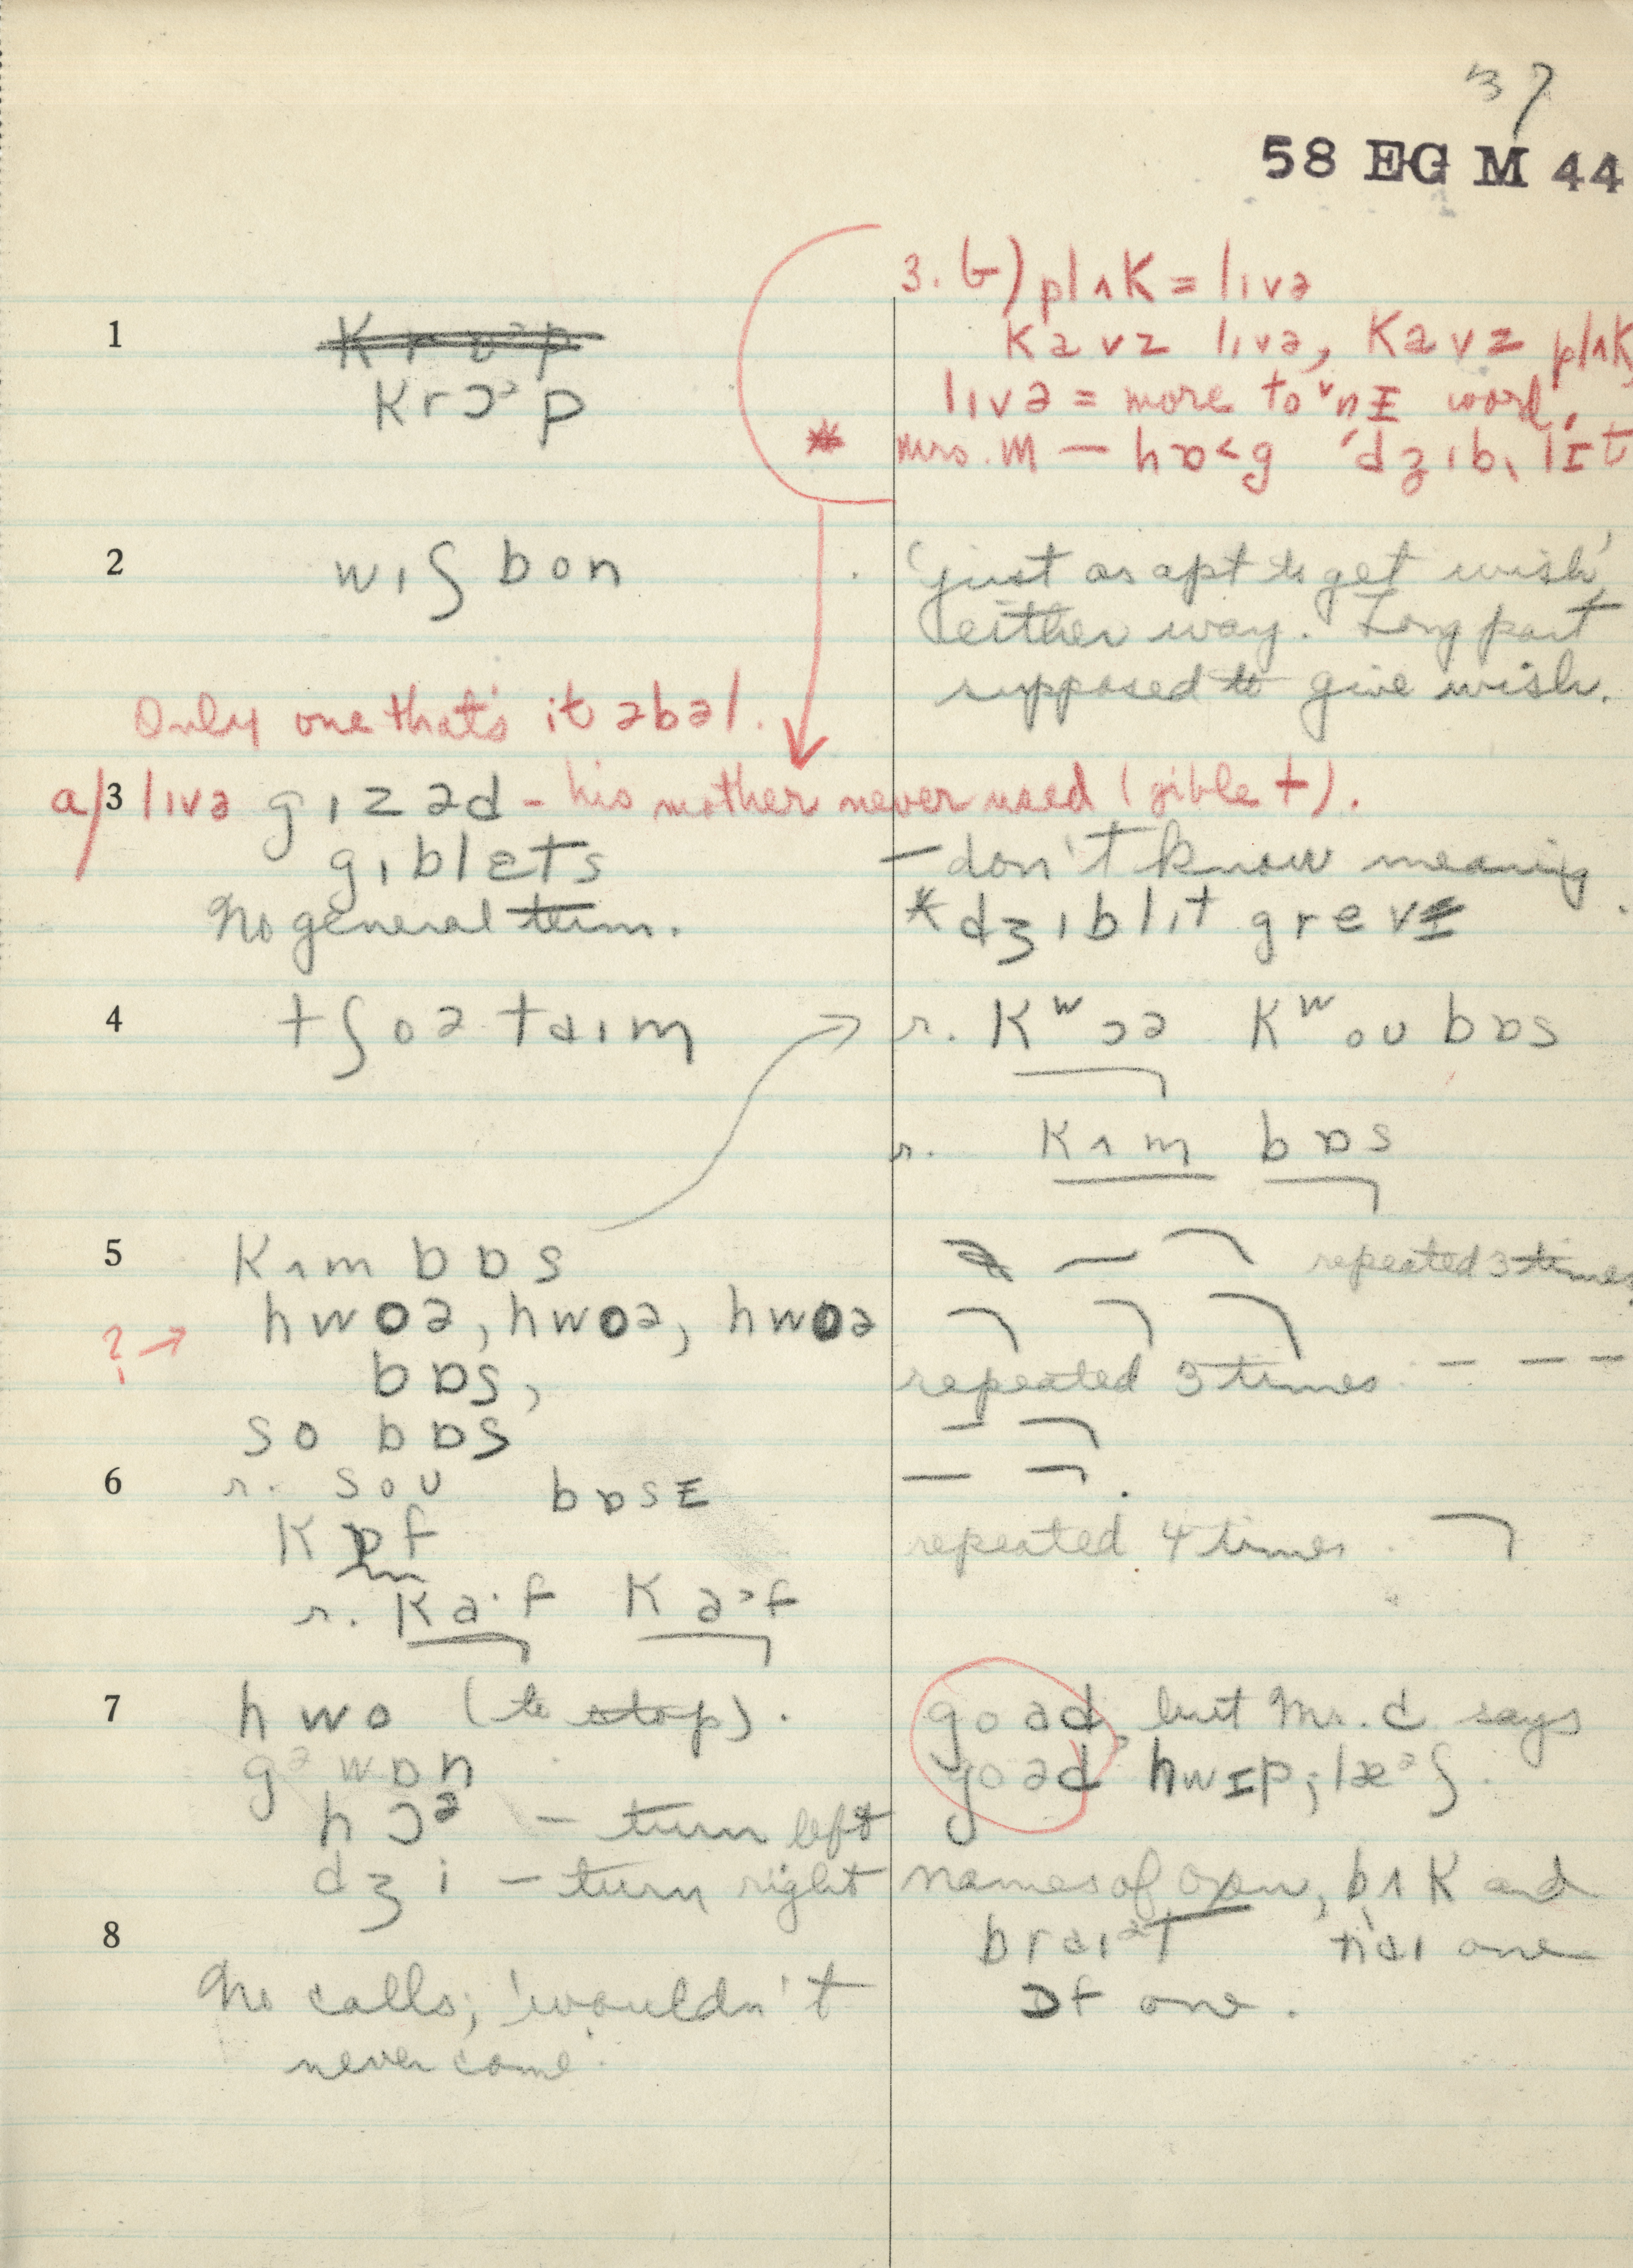 37
58 EG M 44
3. b) plʌk = lɪvə
kavz lɪvə, kavz plʌk,
lɪvə = more to͏ᵛnɪ word.
* Mrs. M — hɒ<g ˈdʒɪb̩lɪt
1
krɔᵊp
2 wɪʃ bon
'just as apt to get wish'
either way. Long part
supposed to give wish.
Only one that's it əbəl.
a/ 3 lɪvə gɪzəd - his mother never used (giblet).
gɪblɛts — don't know meaning.
No general term. * dʒɪblɪt grevɪ
4 tʃoətaɪm r. kʷɔə kʷoʊ bɒs
r. kʌm bɒs
5 kʌm bɒs repeated 3 times
? → hwoə, hwoə, hwoə
bɒs, repeated 3 times - - -
so bɒs
6 r. soʊ bɒsɪ
kɒf repeated 4 times.
r. ka·f kaᵊf
7 hwo (to stop). goad, but Mr. C. says
gᵊwɒn goəd hwɪp; læᵊʃ.
hɔᵊ — turn left
dʒi — turn right names of oxen, bʌk and
8 braɪᵊt naɪ one
ɒf one.
No calls; 'wouldn't
never come'.